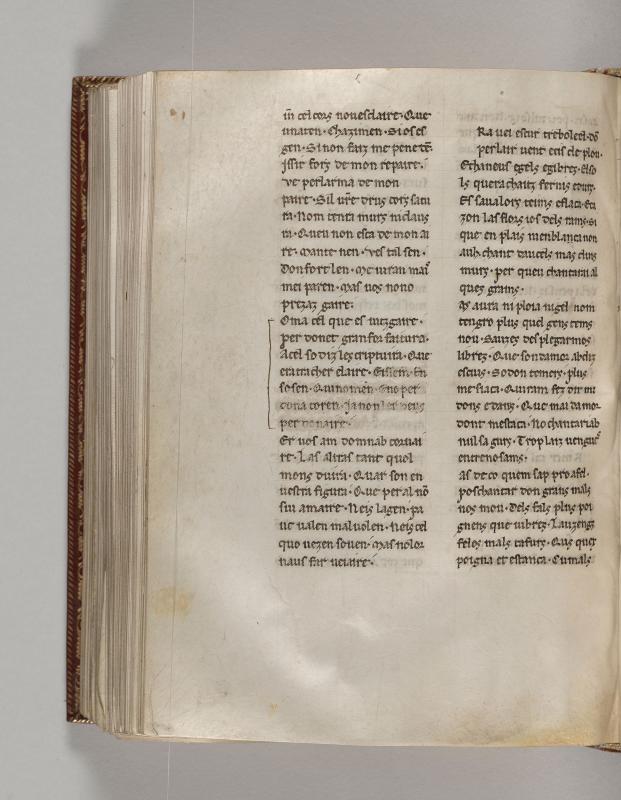 cel cors nouesclaire. Que
Chazimen. Si os es
gen. Si non faiz me peneten
issir fors de mon repaire.
ve per larma de mon
paire. Sil
ra. Nom tenra murs ni claus
ni. Queu non esca de mon ai
re. Mante nen. Ves tal sen.
Don fort len. Me uiran mai
mei paren. Mas uos nono
prezaz gaire.
Oma cel que es iutgaire.
per donet gran for faitura.
Acel so diz lescriptura. Que
era tracher claire. Eissem. En
so sen. Qui no men. Eno per
dona coren. Ja non
per donaire.
Er uos am domnab cor uai
re. Las altras tant quol
mons duira. Quar son en
uestra figura. Que per al no
siu amaire. Neis lagen. pa
uc ualen mal uolen. Neis cel
quo uezen souen. Mas nolor
naus far ueiaire.
Ra uei escur trebolcel. dos
per lair uent e cis e le plou.
Echaneus e gels e gibres. El so
ls quera chautz ferms
Es sa ualors teins e flacs. E ca
zon las flors ios dels rams. Si
que en plais nien blanca non
aub chant daucels mas clus
murs. per queu chantarai al
ques grams.
As aura ni ploia ni gel nom
tengro plus quel gens tems
nou. Sauzes desplegar mos
libres. Que son damor ab diz
escurs. So don temery. plus
me fiacs. Quiram fez dir mi
dons e dans. Que mai damor
dont mestaca. No chantariab
nul sa gurs. Trop lais uengues
entre nosams.
as de co quem sap pro afel.
pos chantar don grans mals
nos mou. Dels fals plus poi
gnens que uibres. Lauzengs
feles mals tafurs. Qus ques
poigna et estanca. Cumals